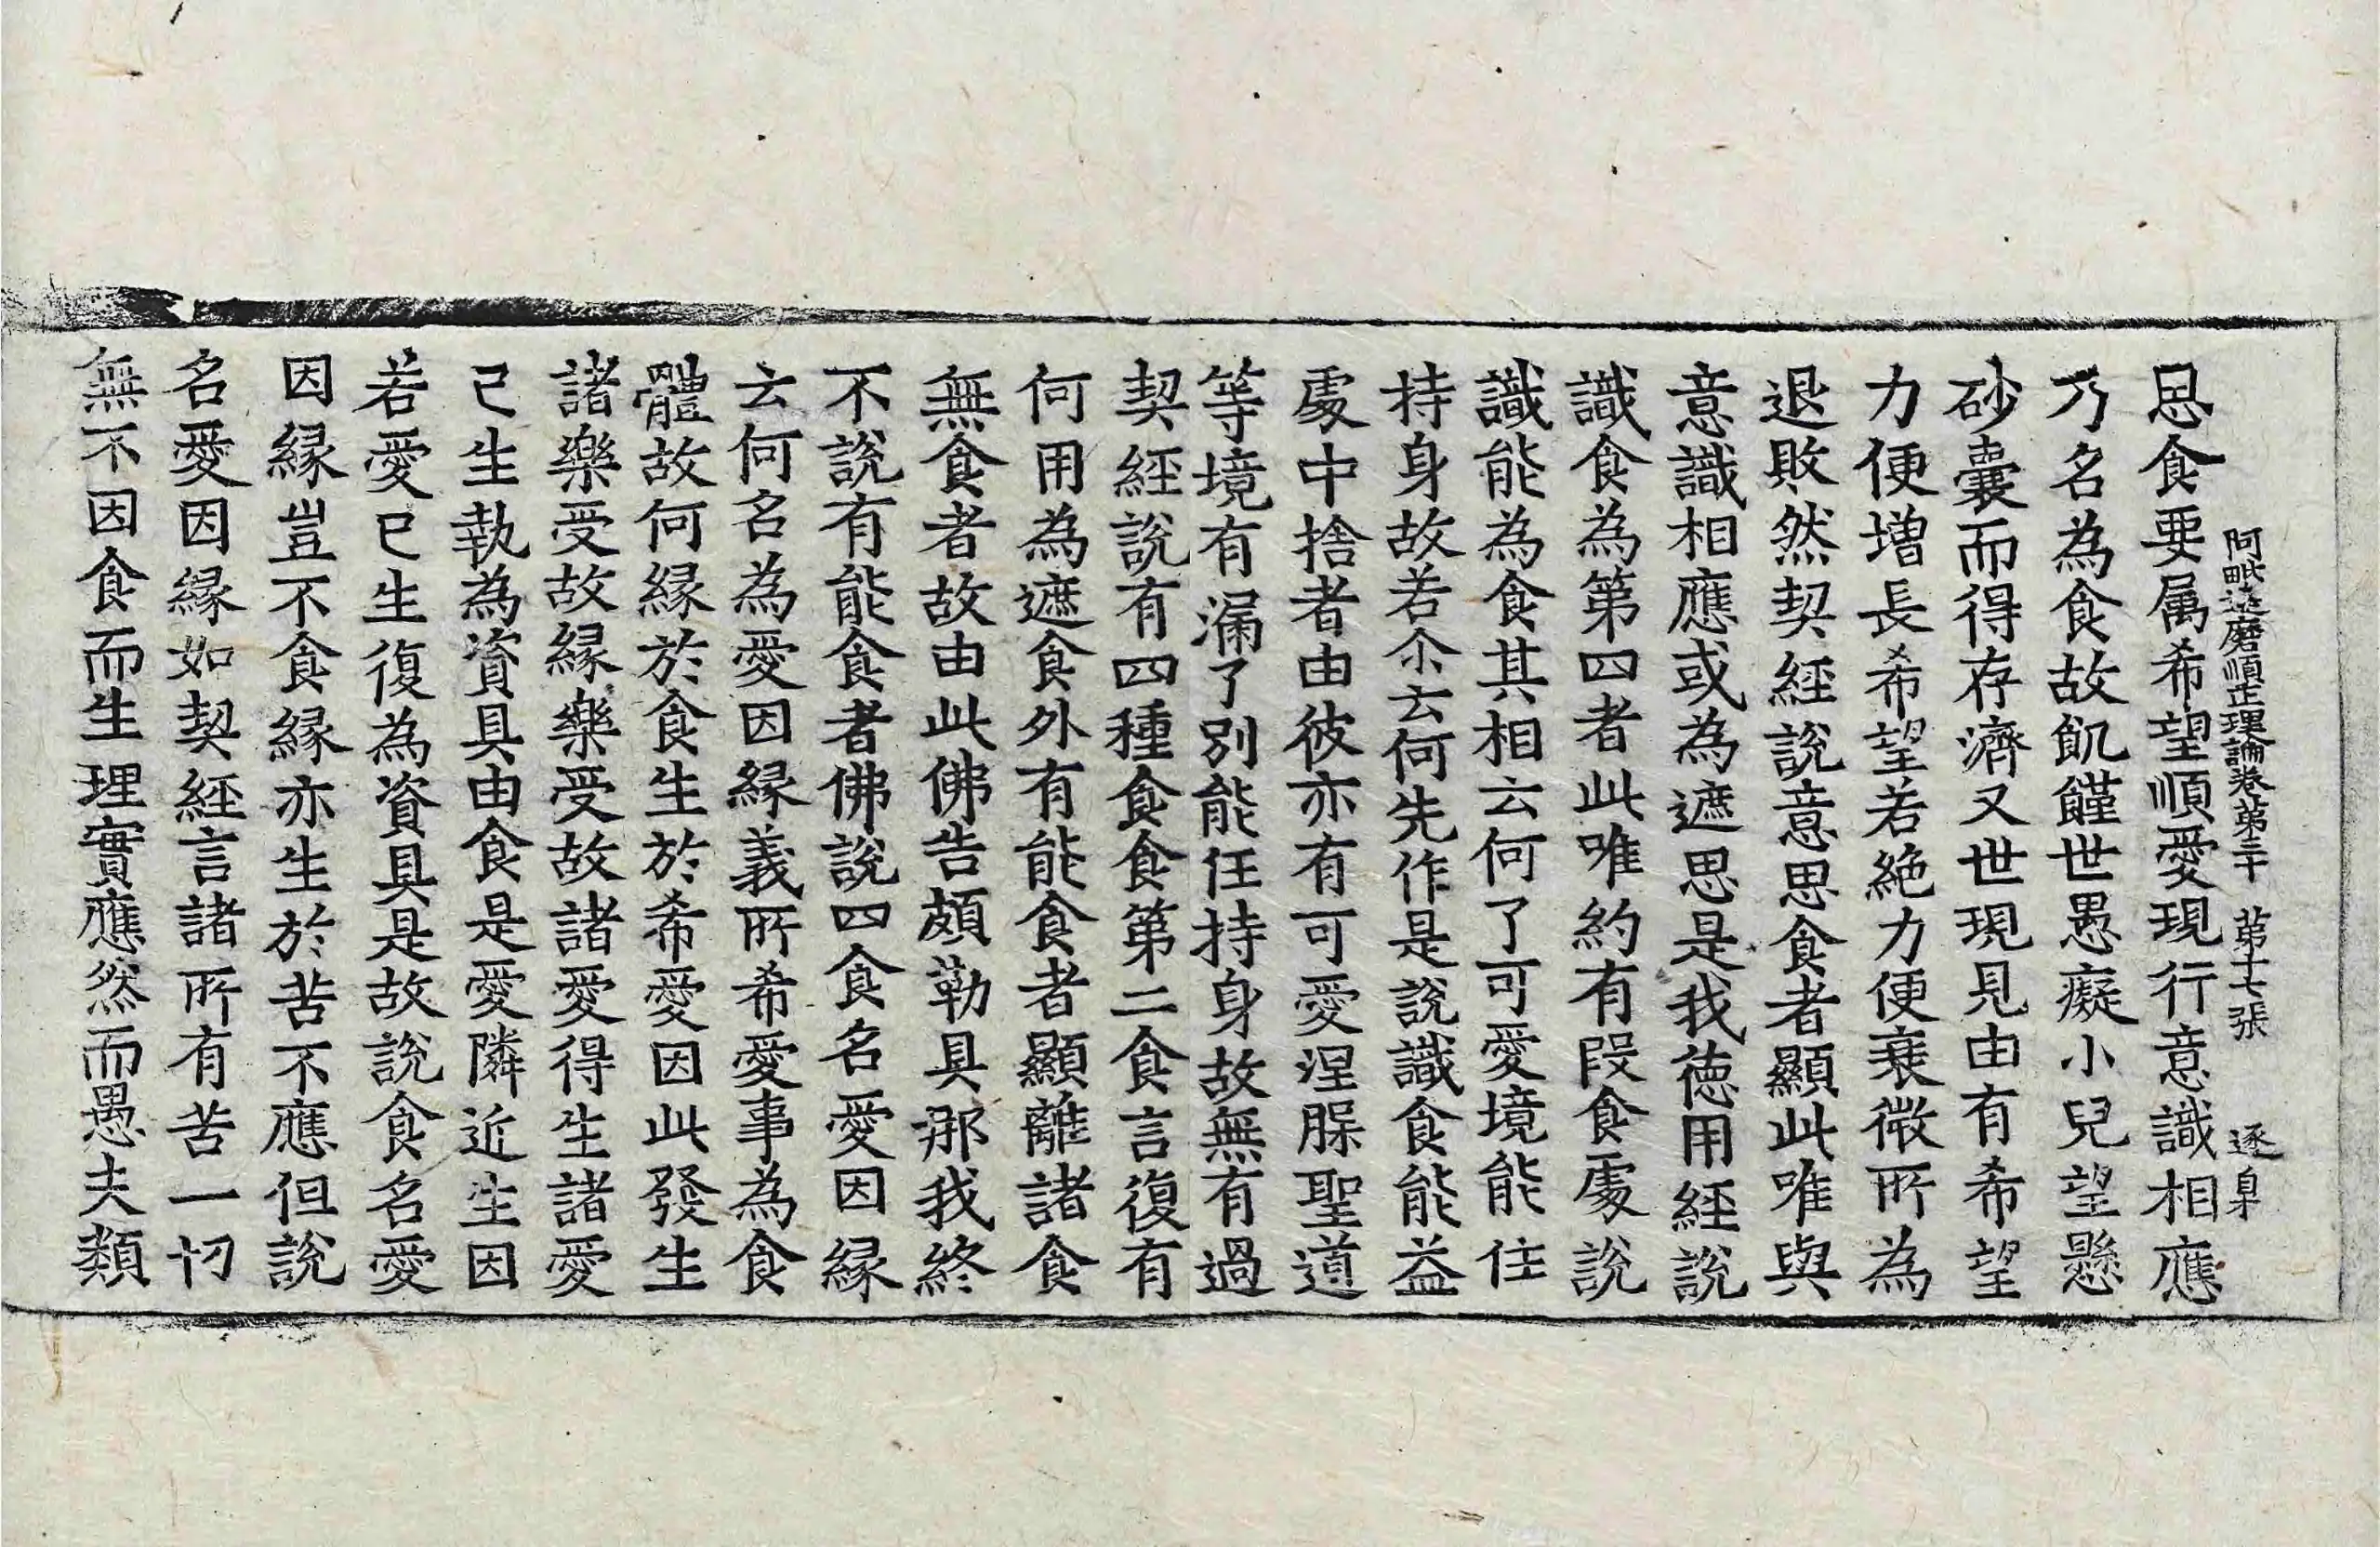 阿毗達磨順正理論卷第三十　第十七張　逐身
思食要属希望順愛現行意識相應
乃名為食故飢饉世愚癡小兒望懸
砂囊而得存濟又世現見由有希望
力便增長希望若絕力便衰微所為
退敗然契經說意思食者顯此唯與
意識相應或為遮思是我徳用經說
識食為第四者此唯約有段食處說
識能為食其相云何了可愛境能住
持身故若尒云何先作是說識食能益
處中捨者由彼亦有可愛涅槃聖道
等境有漏了別能任持身故無有過
契經說有四種食食第二食言復有
何用為遮食外有能食者顯離諸食
無食者故由此佛告頗勒具那我終
不說有能食者佛說四食名愛因緣
云何名為愛因緣義所希愛事為食
體故何緣於食生於希愛因此發生
諸樂受故緣樂受故諸愛得生諸愛
已生執為資具由食是愛隣近生因
若愛已生復為資具是故說食名愛
因緣豈不食緣亦生於苦不應但說
名愛因緣如契經言諸所有苦一切
無不因食而生理實應然而愚夫類